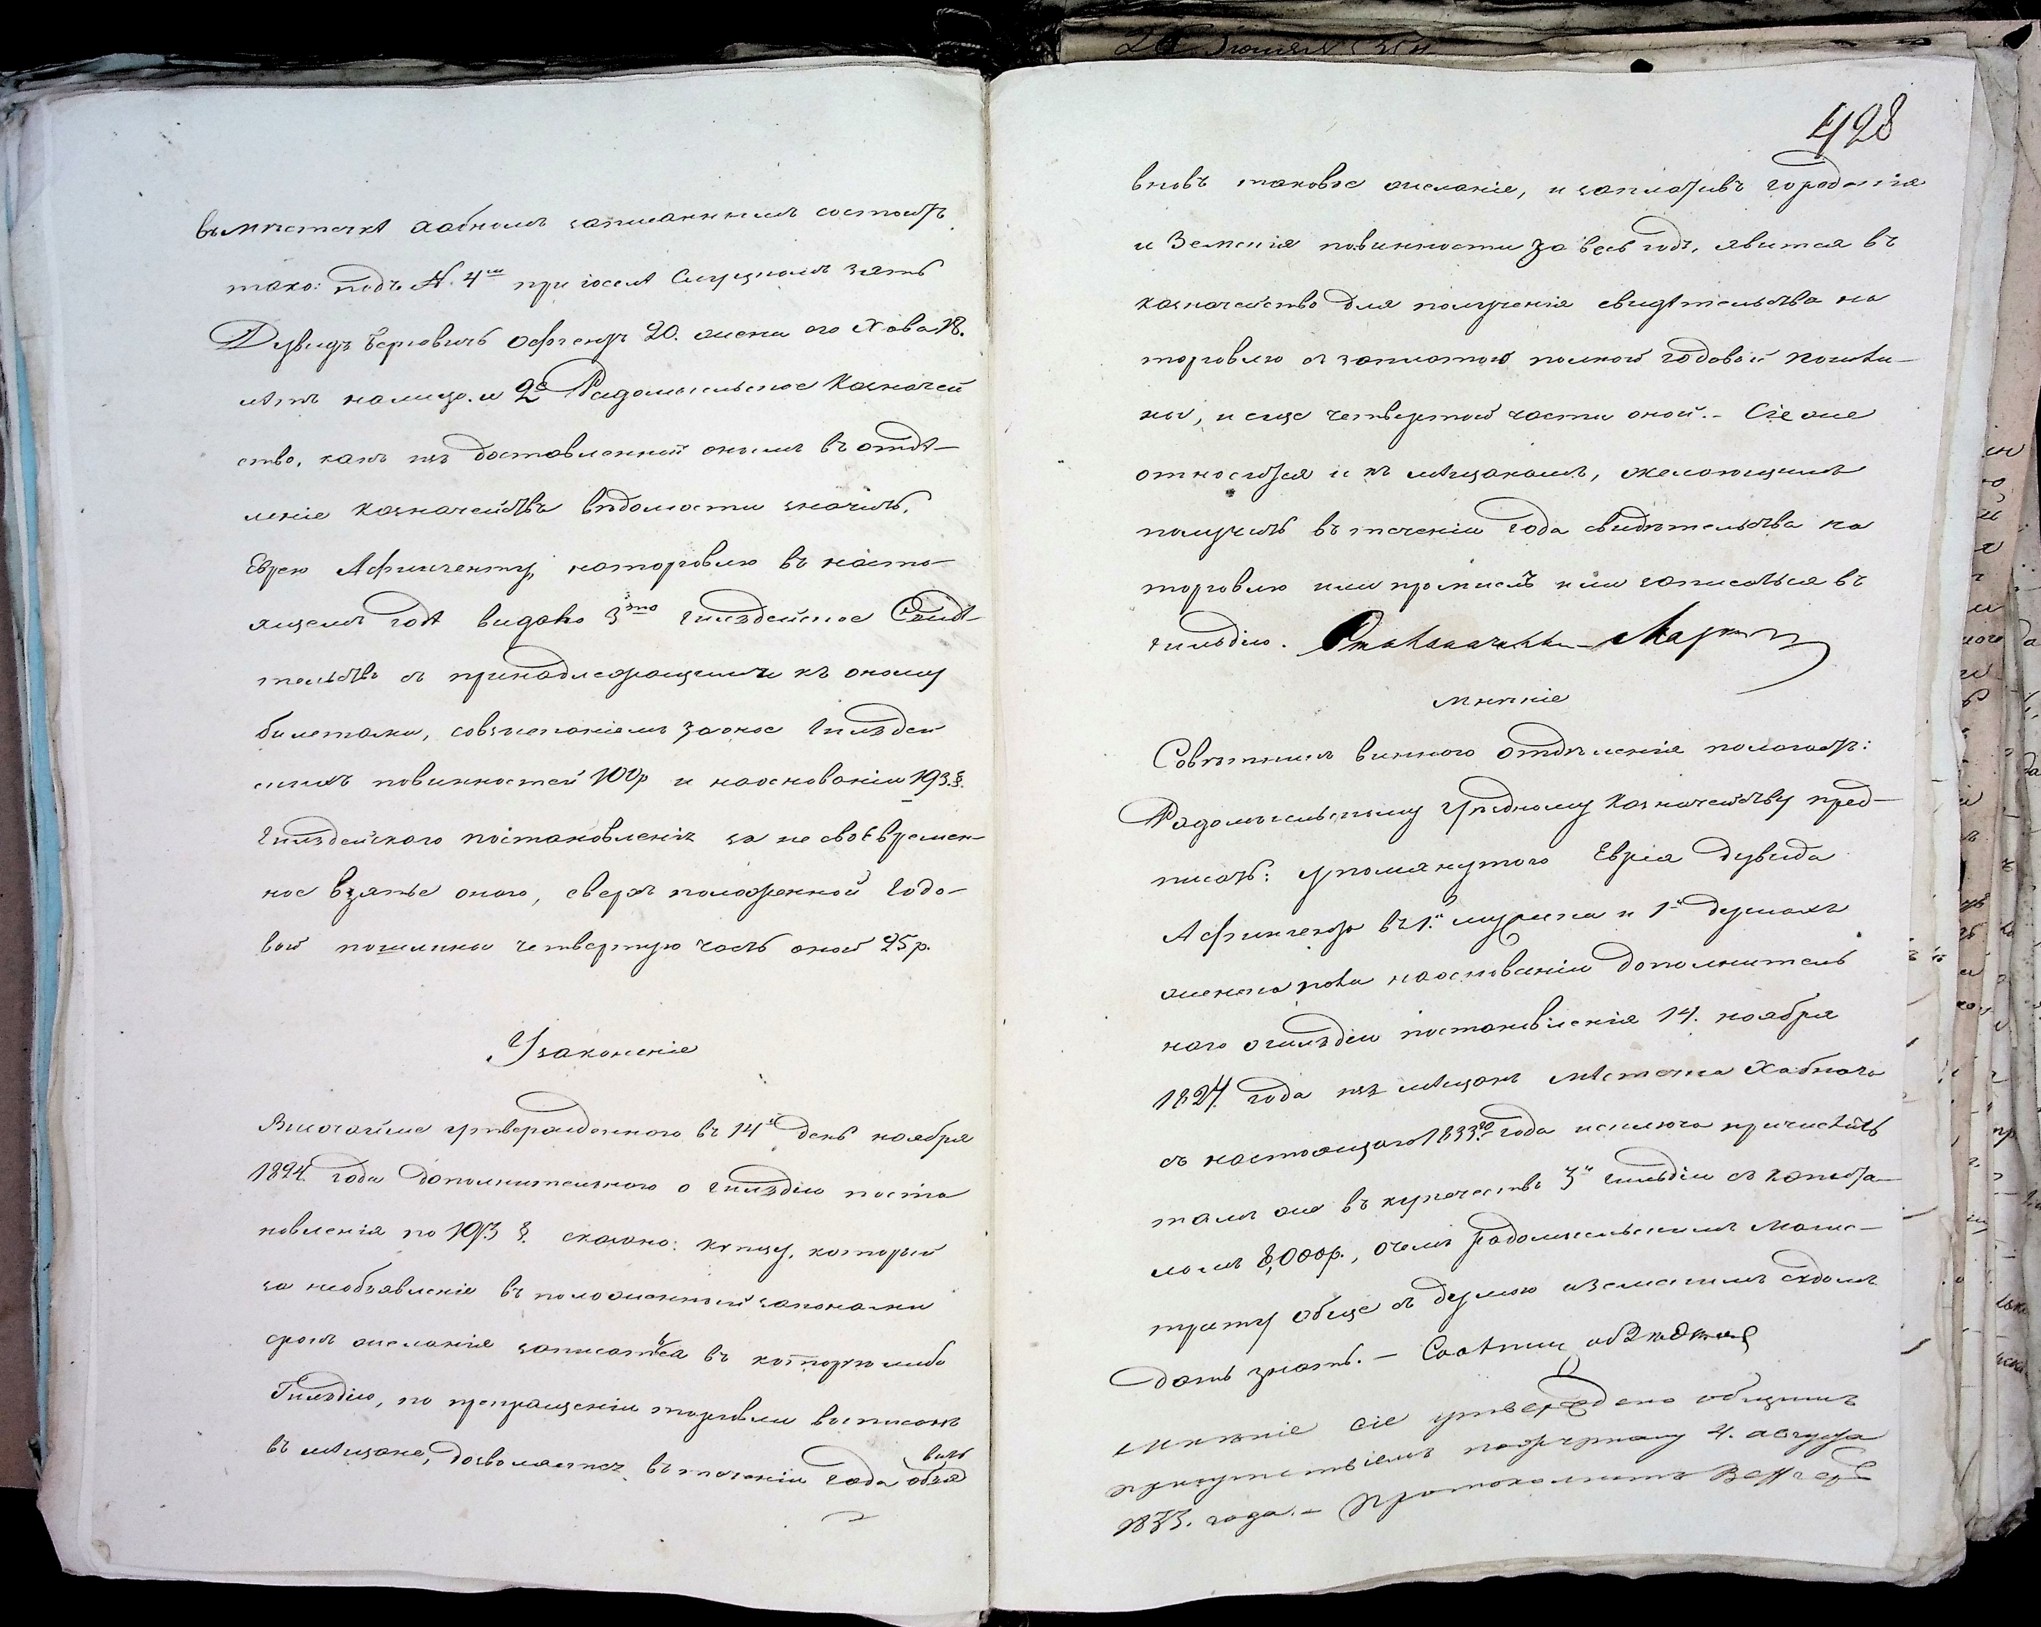 въ мѣстечкѣ Хабномъ записаннымъ состоитъ
тако: подъ № 4мъ при Іоселѣ Слуцкомъ зять
Дувидъ Берковичъ 20. жена его Хава 18.
лѣтъ налицо. и 2е Радомысльское Казначей
ство, какъ изъ доставленной онымъ въ отдѣ-
леніе Казначейства вѣдомости значитъ,
Еврею на торговлю въ насто-
ящемъ годѣ видано 3это гильдейское Свидѣ-
тельство съ принадлежащими къ оному
билетами, со взысканіемъ за оное Гильдей
скихъ повинностей 100р и на основаніи 193.§.
Гильдейского постановленія за не своевремен-
ное взятье оного, сверхъ положенной Годо-
вой пошлины четвертую часть оной 25р.
Узаконеніе
Височайше утвержденного въ 14й день ноября
1824. года дополнительного о гильдіи поста
новленія по 193 §. сказано: купцу, которій
за необъявленіе въ положенный законами
срокъ желанія записатся въ которую либо
Гильдію, по прекращеніи торговли восписанъ
въ мѣщане, дозволяется въ теченіи года объя
вить
428
вновь таковое желаніе, и заплативъ городскія
и Земскія повинности за весь годъ, явится въ
казначейство для полученія свидѣтельства на
торговлю съ заплатою полной годовой пошли-
ны, и еще четвертой части оной. – Сіе же
относится и къ мѣщанамъ, желающимъ
получить въ теченіи года свидѣтельства на
торговлю или промислъ или записаться въ
гильдію.
мнѣніе
Совѣтникъ винного отдѣленія полагаетъ:
Радомысльскому уѣздному Казначейству пред-
писать: упомянутого Еврея Дувида
въ 1й мужска и 1й душахъ
женска пола на основаніи дополнитель
ного о гильдіи постановленія 14. ноября
1824. года изъ мѣщанъ мѣстечка Хабного
съ настоящаго 1833го года исключа причислить
тамъ же въ купечество 3й гильдіи съ капита-
ломъ 8,000р., о чемъ Радомысльскимъ Магис-
трату обще съ Думою и Земскимъ судомъ
дать знать. –
мнѣніе сіе утверждено общимъ
присутствіемъ по журналу 4. августа
1833. года. – Протоколистъ